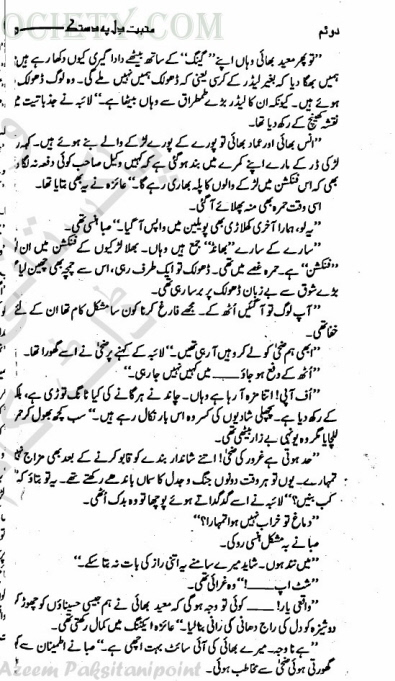 SOCIETY.COM
دوئم محبت دل پہ دستک
"تو پھر معید بھائی وہاں اپنے "گینگ" کے ساتھ بیٹھے دادا گیری کیوں دکھا رہے ہیں
ہمیں بھگا دیا کہ بغیر لیڈر کے کرسی یعنی کہ ڈھولک ہمیں نہیں ملے گی۔ وہ لوگ ڈھولک
ہوئے ہیں۔ کیونکہ ان کا لیڈر بڑے طمطراق سے وہاں بیٹھا ہے۔" لائبہ نے جذباتیت میں
نقشہ کھینچ کے رکھ دیا تھا۔
"انس بھائی اور عماد بھائی تو پورے کے پورے لڑکے والے بنے ہوئے ہیں۔ کہہ رہے
لڑکی ڈر کے مارے اپنے کمرے میں بند ہو گئی ہے کہ کہیں وکیل صاحب کوئی دفعہ نہ لگا
بھی کہ اس فنکشن میں لڑکے والوں کا پلہ بھاری رہے گا۔" عائزہ نے یہ بھی بتایا تھا۔
اسی وقت حمرہ بھی منہ پھلائے آ گئی۔
"یہ لو، ہمارا آخری کھلاڑی بھی پویلین میں واپس آ گیا۔" صبا ہنسی تھی۔
"سارے کے سارے "بھانڈ" جمع ہیں وہاں۔ بھلا لڑکیوں کے فنکشن میں ان
"فنکشن" ہے۔ حمرہ غصے میں تھی۔ ڈھولک تو ایک طرف رہی، اس سے چمچہ بھی چھین لیا
بڑے شوق سے بے زبان ڈھولک پر برسا رہی تھی۔
"آپ لوگ تو آ گئیں اُٹھ کے۔ مجھے فارغ کرنا کون سا مشکل کام تھا ان کے لئے
خفا تھی۔
"ابھی ہم ضحیٰ کو لے کر وہیں آ رہی تھیں۔" لائبہ کے کہنے پر ضحیٰ نے اسے گھورا تھا۔
"اُٹھ کے دفع ہو جاؤ ــــ میں کہیں نہیں جا رہی۔"
"اُف آپی! اتنا مزہ آ رہا ہے وہاں۔ چاند نے ہرگانے کی کیا ٹانگ توڑی ہے، بلکہ
کے رکھ دیا ہے۔ پچھلی شادیوں کی کسر وہ اس بار نکال رہے ہیں۔" سب کچھ بھول کر حمرہ
للچایا مگر وہ یونہی بے زار بیٹھی تھی۔
"حد ہوتی ہے غرور کی ضحیٰ! اتنے شاندار بندے کو قابو کرنے کے بعد بھی مزاج نہیں
تمہارے۔ یوں تو ہر وقت دونوں جنگ و جدل کا سماں باندھے رکھتے تھے۔ یہ تو بتاؤ کہ
کب بنیں؟" لائبہ نے اسے گدگداتے ہوئے پوچھا تو وہ بدک اُٹھی۔
"دماغ تو خراب نہیں ہوا تمہارا؟"
صبا نے بہ مشکل ہنسی روکی۔
"میں نند ہوں۔ شاید میرے سامنے یہ اتنی راز کی بات نہ بتا سکے۔"
"شٹ اپ ــــ!" وہ غرائی تھی۔
"واقعی یار! ــــ کوئی تو وجہ ہو گی کہ معید بھائی نے ہم جیسی حسیناؤں کو چھوڑ کر
دوشیزہ کو دل کی راج دھانی کی رانی بنا لیا۔" عائزہ ایکٹنگ میں کمال رکھتی تھی۔
"ہے نا وجہ۔ میرے بھائی کی آئی سائٹ بہت اچھی ہے۔" صبا نے اطمینان سے
گھورتی ہوئی ضحیٰ سے مخاطب ہوئی۔
Azeem Paksitanipoint